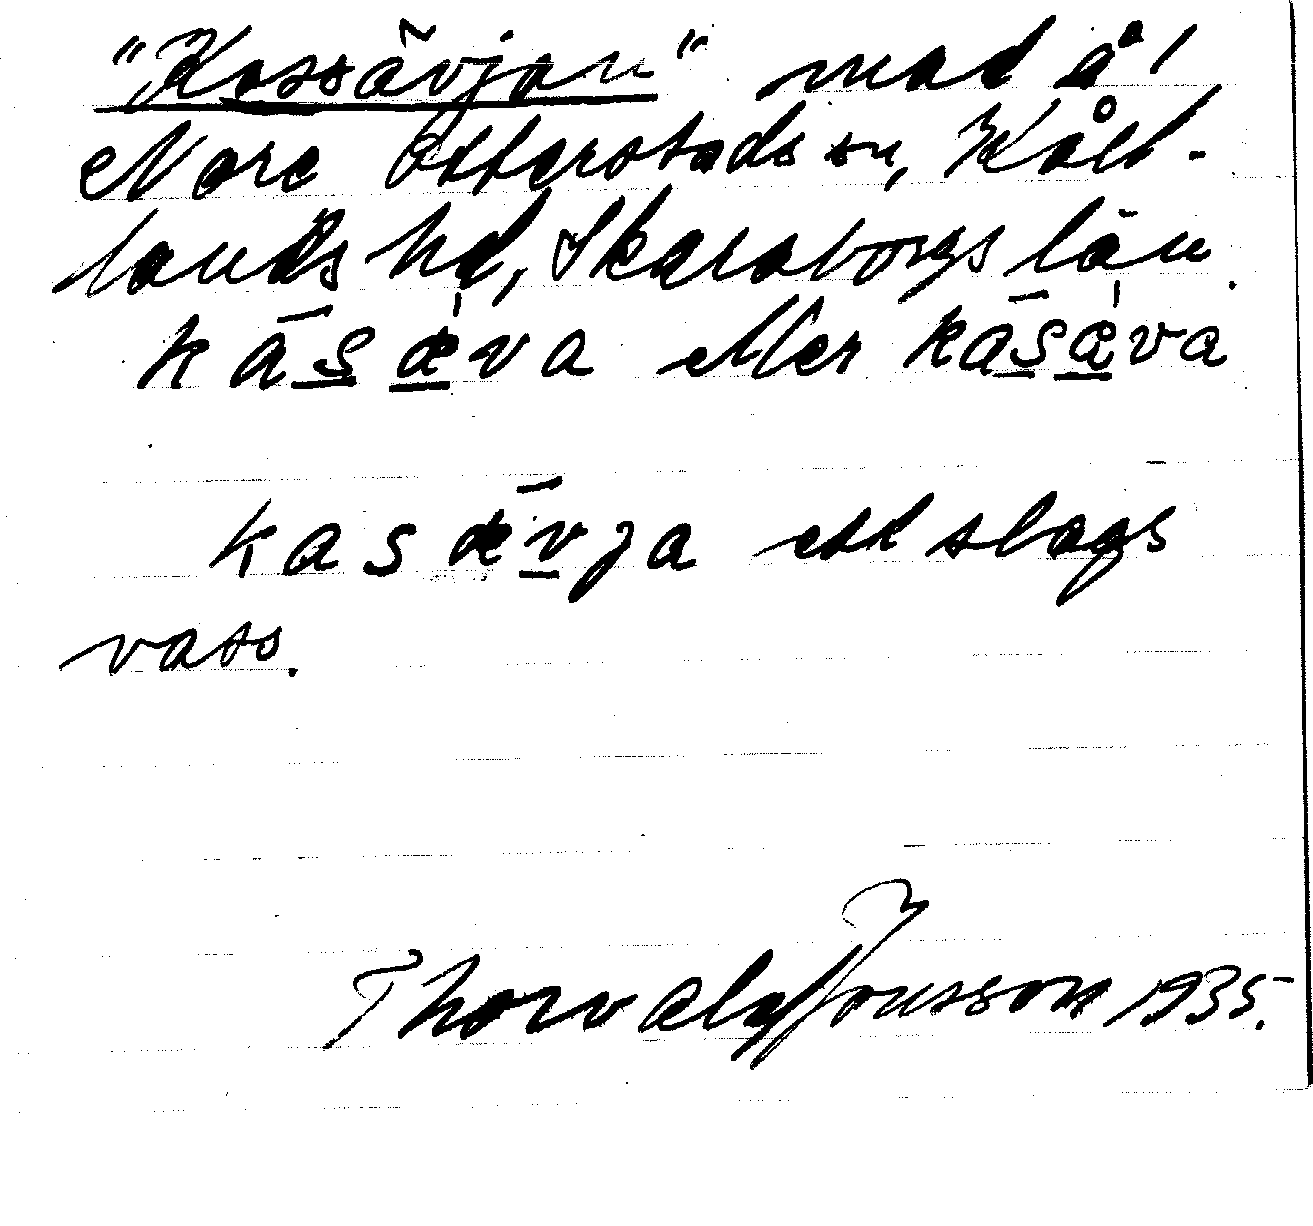 "Kassävjan" mad å!
Nore Otterstads sn, Kål-
lands hd, Skaraborgs län.
kasæva eller kasæva
kasævja ett slags
vass.
Thorvald Jonsson 1935.